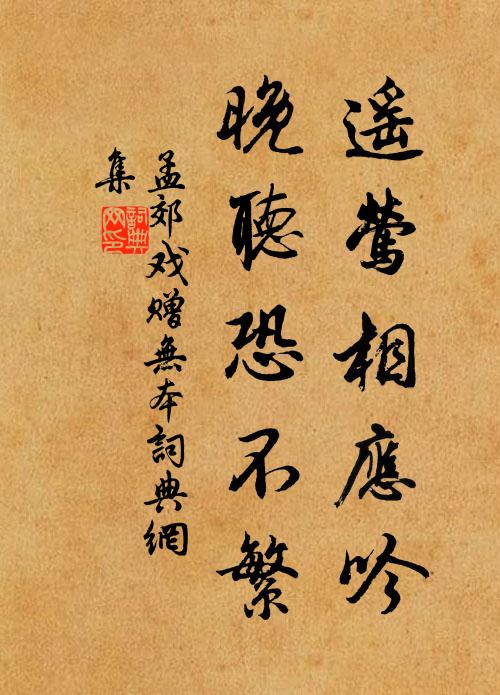 遥莺相應吟
晚聽恐不繁
孟郊戏贈無本詞典網
集
詞典
网印